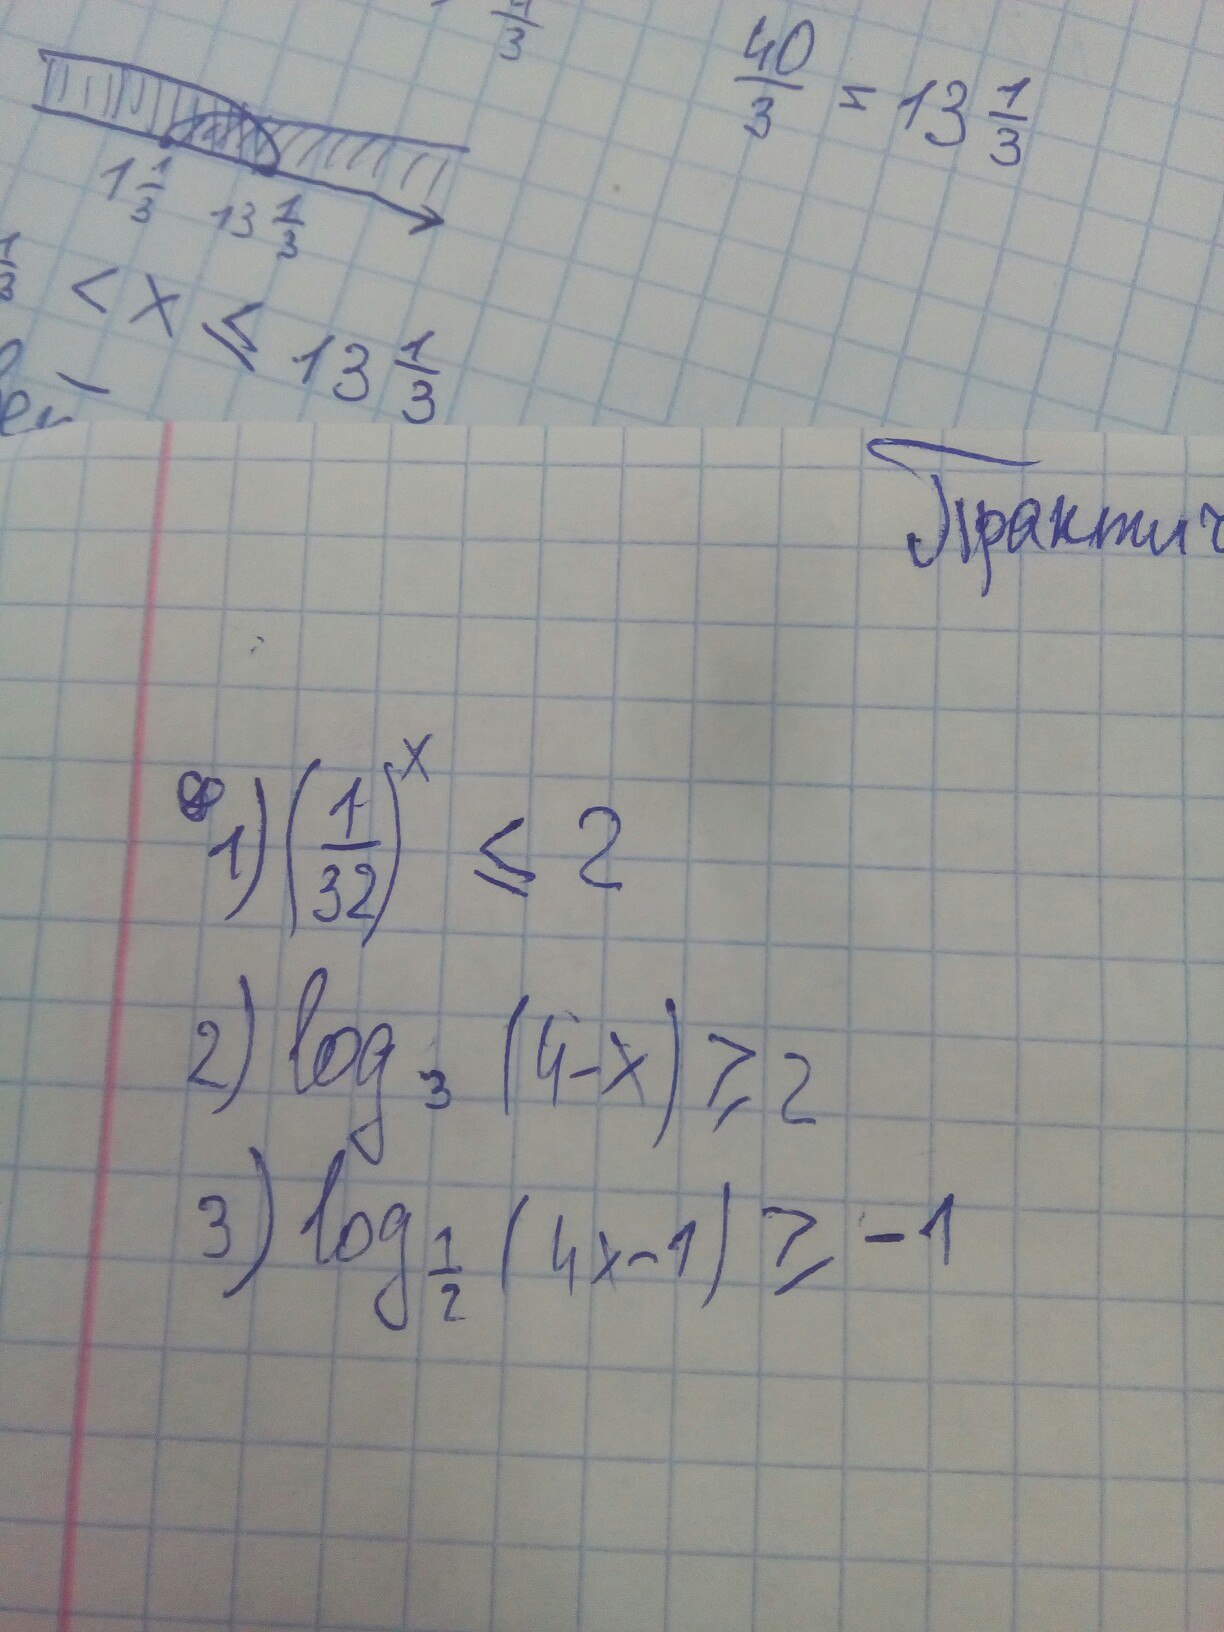 1/3
40/3 = 13 1/3
1 1/3 13 1/3
1/3 < x ≤ 13 1/3
Практич
1) (1/32)^x ≤ 2
2) log_3 (4-x) ≥ 2
3) log_{1/2} (4x-1) ≥ -1